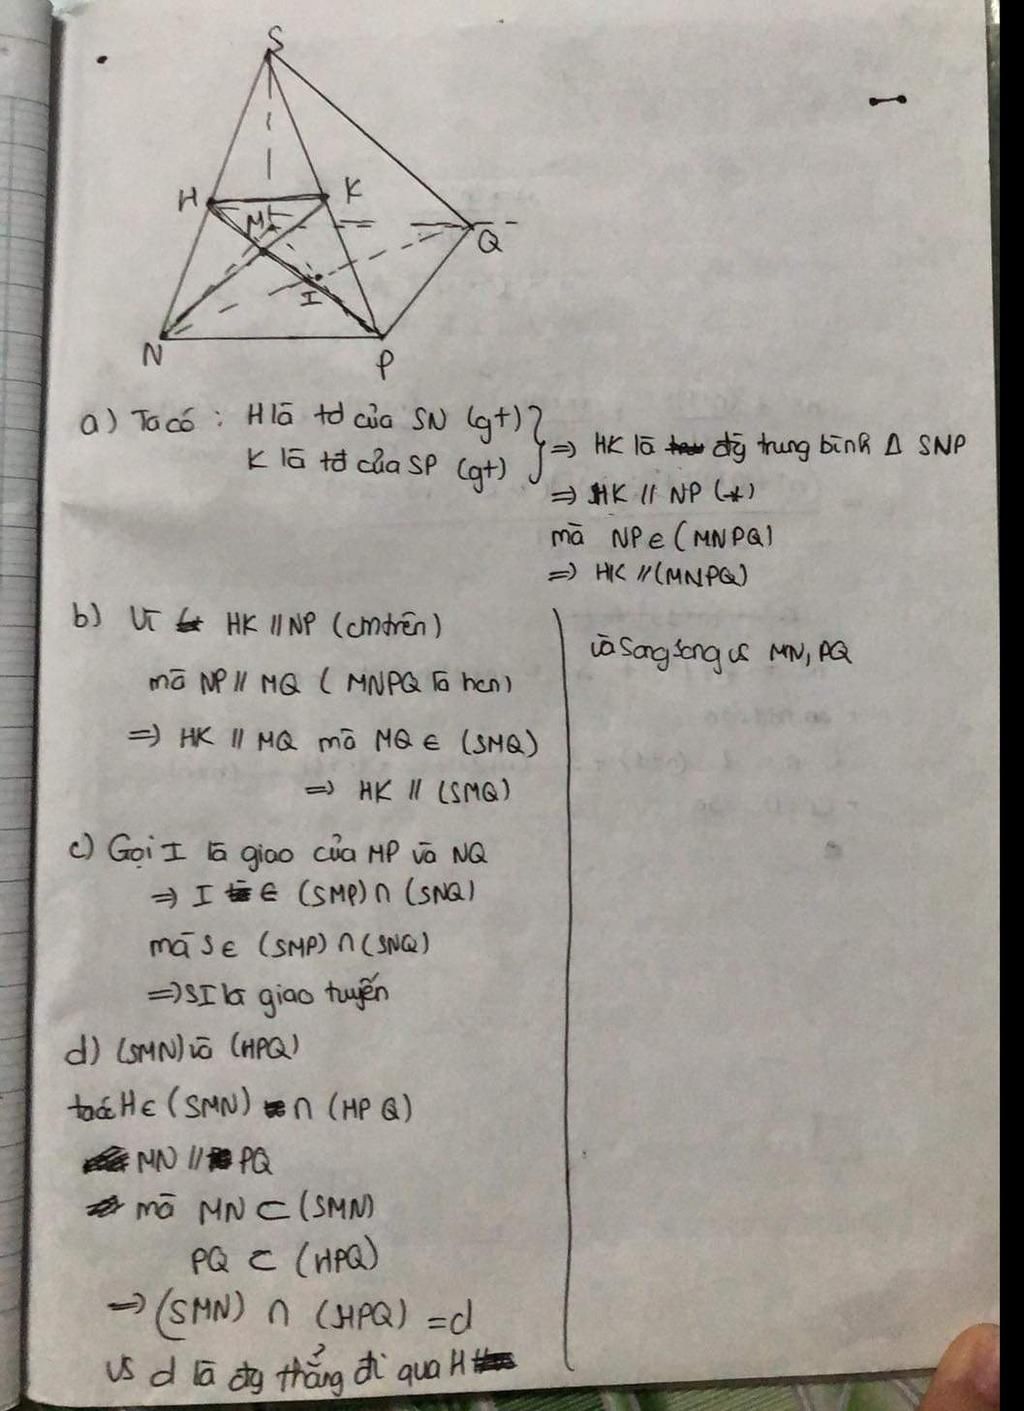 S
H
K
M
Q
I
N
P
a) Ta có : H là tđ của SN (gt)
K là tđ của SP (gt)
=> HK là đg trung bình Δ SNP
=> HK // NP (*)
mà NP ∈ (MNPQ)
=> HK // (MNPQ)
b) Vì HK // NP (cm trên)
mà NP // MQ ( MNPQ là hcn)
=> HK // MQ mà MQ ∈ (SMQ)
=> HK // (SMQ)
c) Gọi I là giao của MP và NQ
=> I ∈ (SMP) ∩ (SNQ)
mà S ∈ (SMP) ∩ (SNQ)
=> SI là giao tuyến
d) (SMN) và (HPQ)
ta có H ∈ (SMN) ∩ (HPQ)
MN // PQ
mà MN ⊂ (SMN)
PQ ⊂ (HPQ)
=> (SMN) ∩ (HPQ) = d
vs d là đg thẳng đi qua H
và song song vs MN, PQ